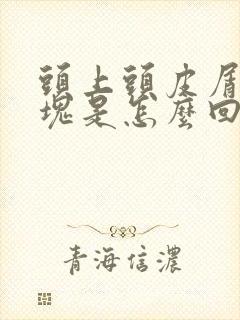 頭上頭皮屑
塊是怎麼回
青海信濃